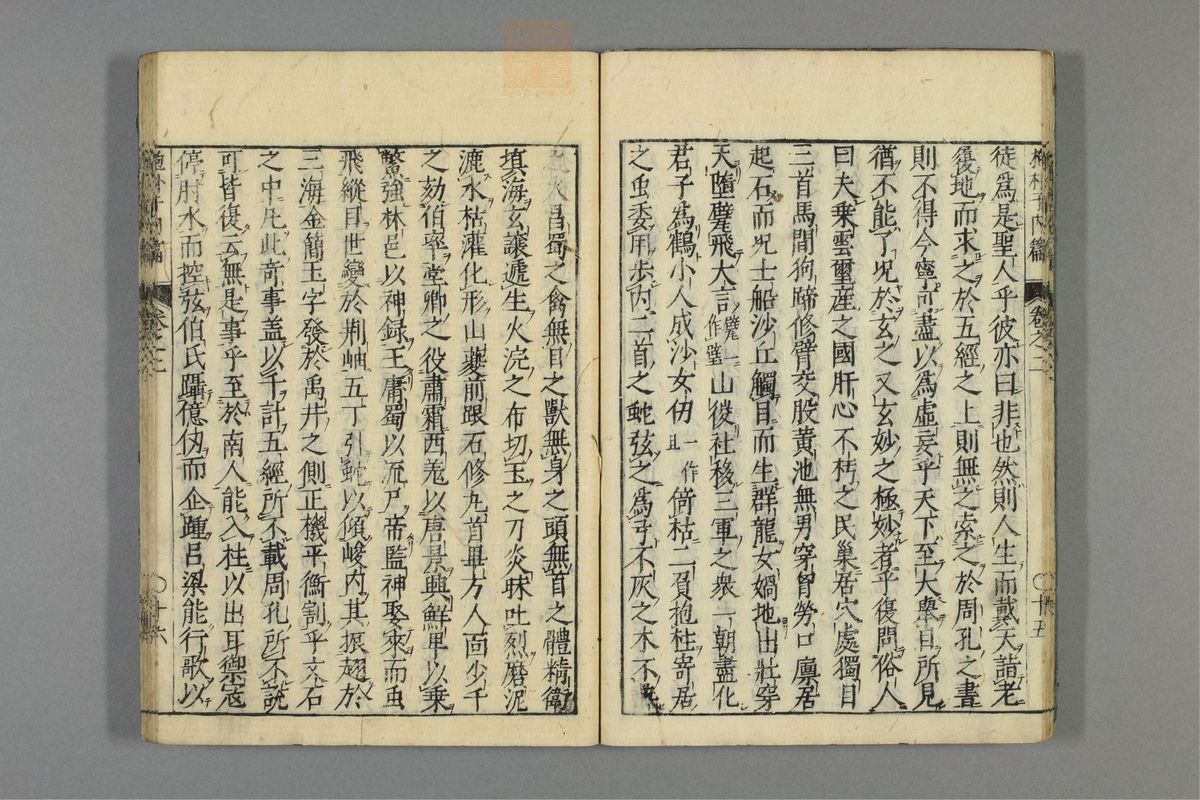 抱朴子内篇 卷之二 〇十五
徒爲是聖人乎彼亦曰非也然則人生而戴天詣老
履地而求之於五經之上則無之索之於周孔之書
則不得今寧可盡以爲虛妄乎天下至大舉目所見
猶不能了况於玄之又玄妙之極妙者乎復問俗人
曰夫乘雲璽産之國肝心不朽之民巢居穴處獨目
三首馬間狗蹄修臂交股黄池無男穿胷旁口廪居
起石而汎土船沙丘觸目而生群龍女媧地出壯穿
天墮甓飛犬言甓一作璧山徙社移三軍之衆一朝盡化
君子爲鶴小人成沙女仞一作丑倚枯二負抱柱寄居
之虫委甲步肉二首之蛇弦之爲弓不灰之木不
火昌蜀之禽無目之獸無身之頭無首之體精衛
填海玄讓遞生火浣之布切玉之刀炎昧吐烈磨泥
漉水枯灌化形山夔前跟石修九首畢方人面少千
之劾伯率堂卿之役肅霜西羗以唐景興鮮卑以乗
鱉強林邑以神録王庸蜀以流尸帝監神娶來而虫
飛縱目世變於荆岫五丁引蛇以傾峻内其振翅於
三海金簡玉字發於禹井之側正機平衡割乎文石
之中凡此竒事蓋以千計五經所不載周孔所不說
可皆復云無是事乎至於南人能入柱以出耳禦寇
停肘水而控弦伯氏躡億仞而企踵吕梁能行歌以
抱朴子内篇 卷之二 〇十六